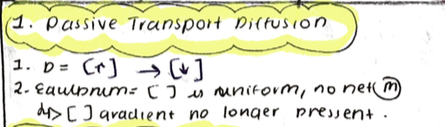 1. Passive Transport Diffusion
1. D = [↑] → [↓]
2. Equilbrium = [ ] is uniform, no net (m)
↳ [ ] gradient no longer pressent.